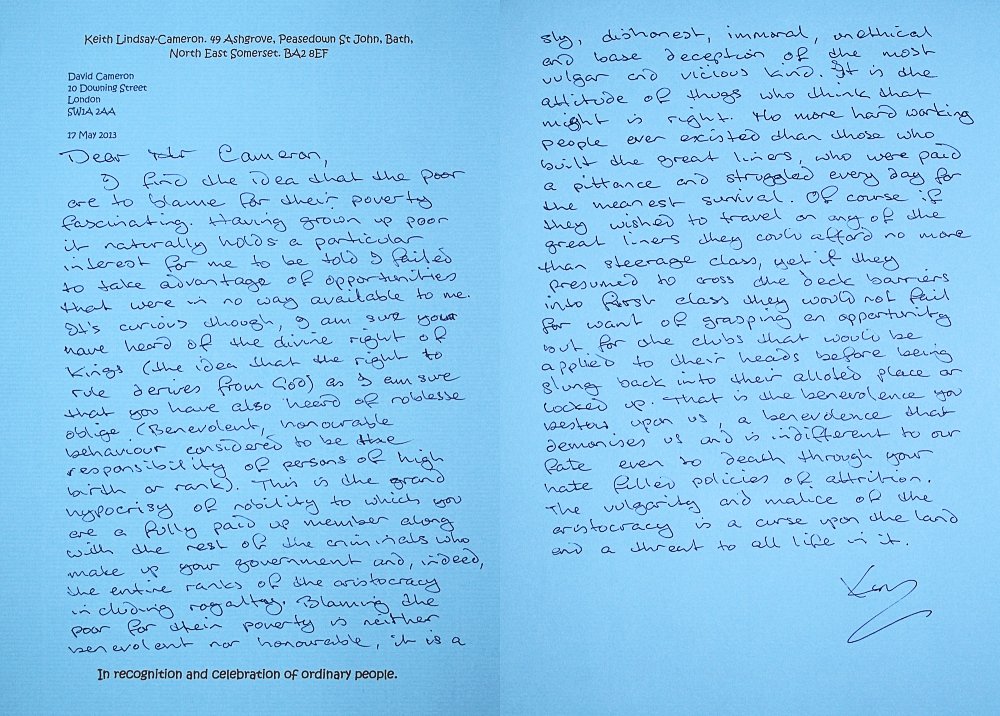 Keith Lindsay-Cameron. 49 Ashgrove, Peasedown St John, Bath,
North East Somerset. BA2 8EF
David Cameron
10 Downing Street
London
SW1A 2AA
17 May 2013
Dear Mr Cameron,
I find the idea that the poor
are to blame for their poverty
fascinating. Having grown up poor
it naturally holds a particular
interest for me to be told I failed
to take advantage of opportunities
that were in no way available to me.
It's curious though, I am sure you
have heard of the divine right of
Kings (the idea that the right to
rule derives from God) as I am sure
that you have also heard of noblesse
oblige. (Benevolent, honourable
behaviour considered to be the
responsibility of persons of high
birth or rank). This is the grand
hypocrisy of nobility to which you
are a fully paid up member along
with the rest of the criminals who
make up your government and, indeed,
the entire ranks of the aristocracy
including royalty. Blaming the
poor for their poverty is neither
benevolent nor honourable, it is a
In recognition and celebration of ordinary people.
sly, dishonest, immoral, unethical
and base deception of the most
vulgar and vicious kind. It is the
attitude of thugs who think that
might is right. No more hard working
people ever existed than those who
built the great liners, who were paid
a pittance and struggled every day for
the meanest survival. Of course if
they wished to travel on any of the
great liners they could afford no more
than steerage class, yet if they
presumed to cross the deck barriers
into first class they would not fail
for want of grasping an opportunity
but for the clubs that would be
applied to their heads before being
slung back into their alloted place or
locked up. That is the benevolence you
bestow upon us, a benevolence that
demonises us and is indifferent to our
fate even to death through your
hate filled policies of attrition.
The vulgarity and malice of the
aristocracy is a curse upon the land
and a threat to all life in it.